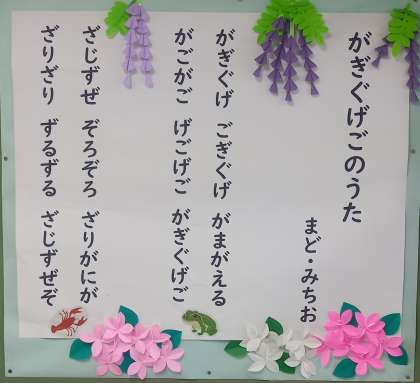 がぎぐげごのうた
まど・みちお
がぎぐげ ごぎぐげ がまがえる
がごがご げごげご がぎぐげご
ざじずぜ ぞろぞろ ざりがにが
ざりざり ずるずる ざじずぜぞ